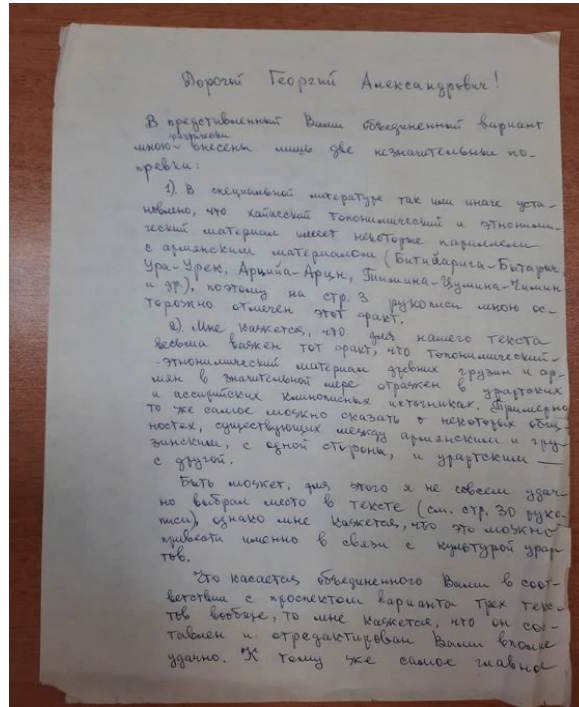 Дорогой Георгий Александрович!
В представленный Вами объединенный вариант
рукописи
мною внесены лишь две незначительные по-
правки:
1). В специальной литературе так или иначе уста-
новлено, что хайасский топонимический и этноними-
ческий материал имеет некоторые параллели
с армянским материалом (Битиярига-Бытарыч,
Ура-Урек, Арцийа-Арцн, Тимина-Цумина-Чимин
и др.), поэтому на стр. 3 рукописи мною ос-
торожно отмечен этот факт.
2). Мне кажется, что для нашего текста
весьма важен тот факт, что топонимический-
-этнонимический материал древних грузин и ар-
мян в значительной мере отражен в урартских
и ассирийских клинописных источниках. Примерно
то же самое можно сказать о некоторых общ-
ностях, существующих между армянским и гру-
зинским, с одной стороны, и урартским —
с другой.
Быть может, для этого я не совсем удач-
но выбрал место в тексте (см. стр. 30 руко-
писи), однако мне кажется, что это можно
привести именно в связи с культурой урар-
тов.
Что касается объединенного Вами в соот-
ветствии с проспектом варианта трех текс-
тов вообще, то мне кажется, что он сос-
тавлен и отредактирован Вами вполне
удачно. К тому же самое главное